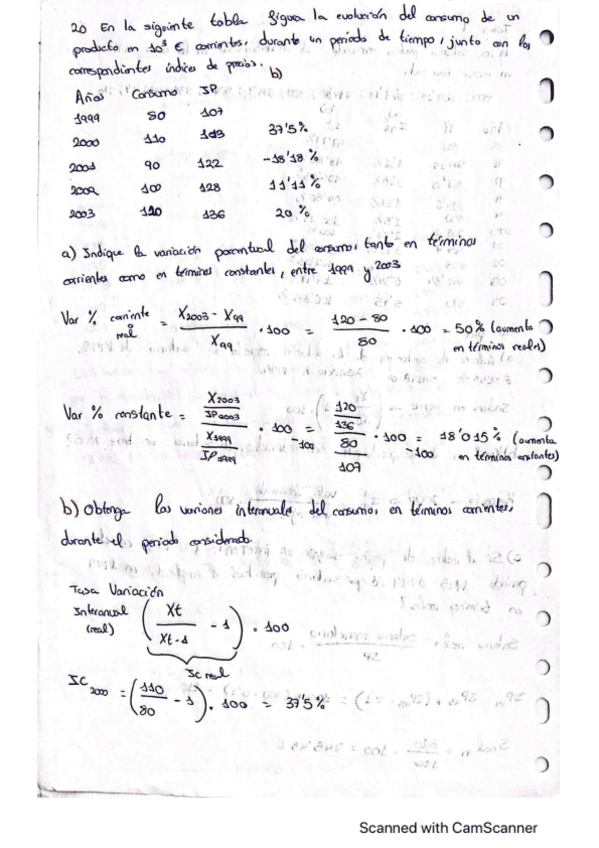 20 En la siguiente tabla figura la evolución del consumo de un
producto en 10³ € corrientes, durante un periodo de tiempo, junto con los
correspondientes índices de precios.
b)
Años Consumo IP
1999 80 107
2000 110 113 37'5%
2001 90 122 -18'18 %
2002 100 128 11'11 %
2003 120 136 20 %
a) Indique la variación porcentual del consumo, tanto en términos
corrientes como en términos constantes, entre 1999 y 2003
Var % corriente o real = X2003 - X99 / X99 · 100 = 120 - 80 / 80 · 100 = 50% (aumenta
en términos reales)
Var % constante = X2003 / IP2003 / X1999 / IP1999 · 100 - 100 = 120 / 136 / 80 / 107 · 100 - 100 = 18'015% (aumenta
en términos constantes)
b) Obtenga las variones interanuales del consumo, en términos corrientes,
durante el periodo considerado.
Tasa Variación
Interanual
(real)
(Xt / Xt-1 - 1) · 100
IC real
IC 2000 = (110 / 80 - 1) · 100 = 37'5%
Scanned with CamScanner